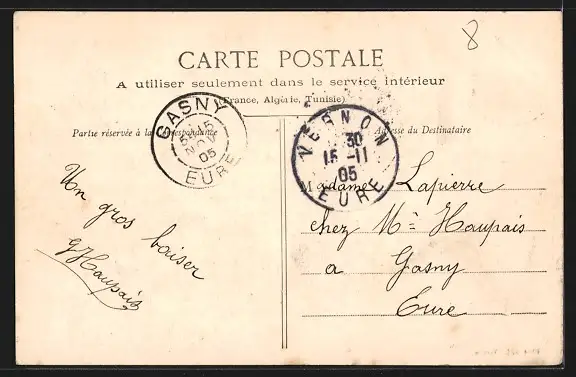 8
CARTE POSTALE
A utiliser seulement dans le service intérieur
(France, Algérie, Tunisie)
Partie réservée à la Correspondance
Adresse du Destinataire
GASNY
15
NOV
05
EURE
VERNON
30
15 -11
05
EURE
Un gros baiser
G Haupais
Madame Lapierre
chez Mr Haupais
a Gasny
Eure